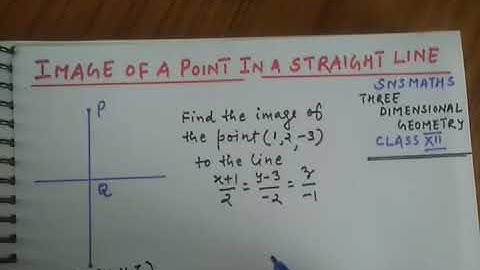 IMAGE OF A POINT IN A STRAIGHT LINE
SNSMATHS
THREE
DIMENSIONAL
GEOMETRY
CLASS XII
P
Q
Find the image of
the point (1, 2, -3)
to the line
x+1/2 = y-3/-2 = z/-1